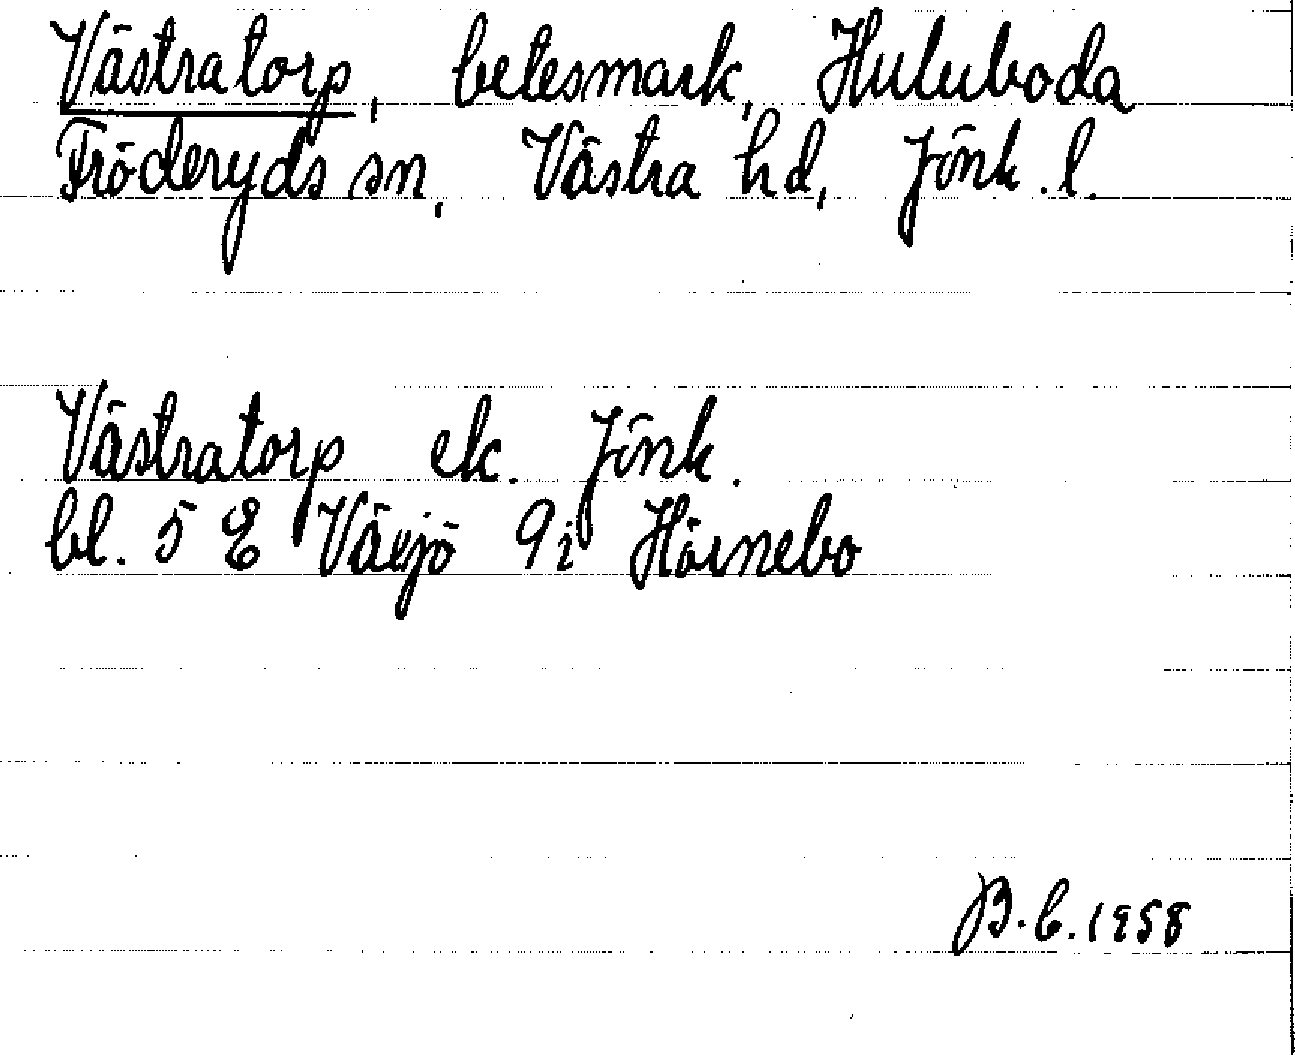 Västratorp, betesmark, Huluboda
Fröderyds sn, Västra hd, Jönk. l.
Västratorp ek. Jönk.
bl. 5 E Växjö 9 i Hörnebo
B. C. 1958